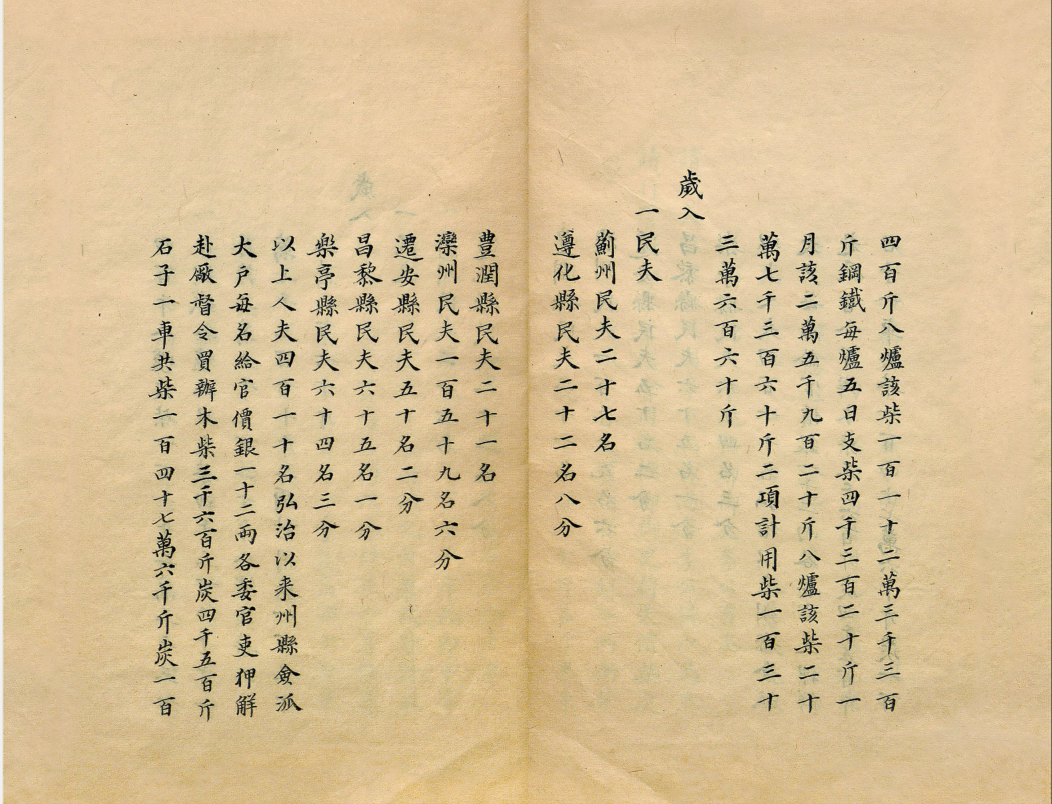 四百斤八爐該柴一百一十二萬三千三百
斤鋼鐵每爐五日支柴四千三百二十斤一
月該二萬五千九百二十斤八爐該柴二十
萬七千三百六十斤二項計用柴一百三十
三萬六百六十斤
歲入
一民夫
薊州民夫二十七名
遵化縣民夫二十二名八分
豐潤縣民夫二十一名
灤州民夫一百五十九名六分
遷安縣民夫五十名二分
昌黎縣民夫六十五名一分
樂亭縣民夫六十四名三分
以上人夫四百一十名弘治以来州縣僉派
大戶每名給官價銀一十二兩各委官吏押解
赴廠督令買辦木柴三千六百斤炭四千五百斤
石子一車共柴一百四十七萬六千斤炭一百